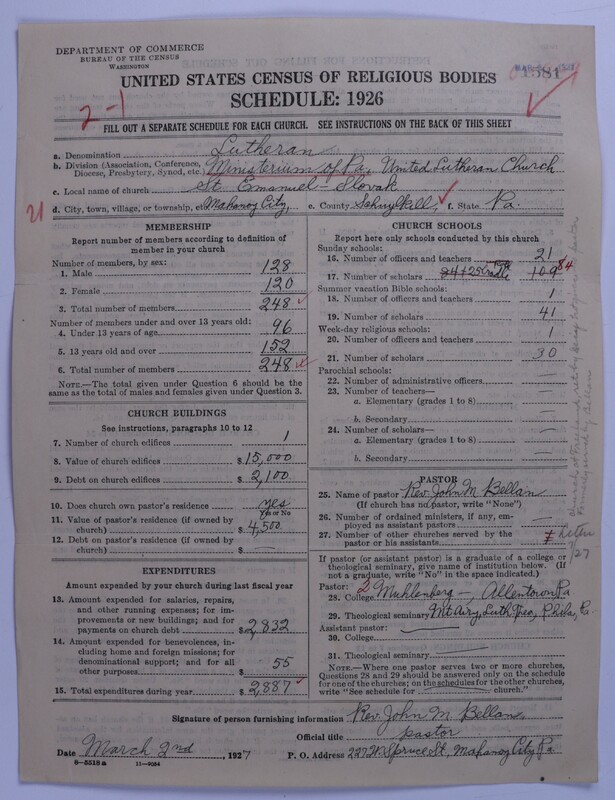 DEPARTMENT OF COMMERCE
BUREAU OF THE CENSUS
WASHINGTON
1581
UNITED STATES CENSUS OF RELIGIOUS BODIES
SCHEDULE: 1926
2-1
FILL OUT A SEPARATE SCHEDULE FOR EACH CHURCH. SEE INSTRUCTIONS ON THE BACK OF THIS SHEET
a. Denomination Lutheran
b. Division (Association, Conference, Diocese, Presbytery, Synod, etc.) Ministerium of Pa, United Lutheran Church
c. Local name of church St. Emanuel - Slovak
21
d. City, town, village, or township, etc. Mahanoy City, e. County Schuylkill, f. State Pa.
MEMBERSHIP
Report number of members according to definition of
member in your church
Number of members, by sex:
1. Male 128
2. Female 120
3. Total number of members 248
Number of members under and over 13 years old:
4. Under 13 years of age 96
5. 13 years old and over 152
6. Total number of members 248
NOTE.—The total given under Question 6 should be
same as the total of males and females given under Question 3.
CHURCH BUILDINGS
See instructions, paragraphs 10 to 12
7. Number of church edifices 1
8. Value of church edifices $15,000
9. Debt on church edifices $2,100
10. Does church own pastor's residence? yes
Yes or No
11. Value of pastor's residence (if owned by
church) $4,500
12. Debt on pastor's residence (if owned by
church) $ —
EXPENDITURES
Amount expended by your church during last fiscal year
13. Amount expended for salaries, repairs,
and other running expenses; for im-
provements or new buildings; and for
payments on church debt $2,832
14. Amount expended for benevolences, in-
cluding home and foreign missions; for
denominational support; and for all
other purposes $ 55
15. Total expenditures during year $2,887
CHURCH SCHOOLS
Report here only schools conducted by this church
Sunday schools:
16. Number of officers and teachers 21
17. Number of scholars 84+25 Cradle Roll 109 84
Summer vacation Bible schools:
18. Number of officers and teachers 1
19. Number of scholars 41
Week-day religious schools:
20. Number of officers and teachers 1
21. Number of scholars 30
Parochial schools:
22. Number of administrative officers —
23. Number of teachers—
a. Elementary (grades 1 to 8) —
b. Secondary —
24. Number of scholars—
a. Elementary (grades 1 to 8) —
b. Secondary —
PASTOR
25. Name of pastor Rev. John M. Bellan
(If church has no pastor, write "None")
26. Number of ordained ministers, if any, em-
ployed as assistant pastors —
27. Number of other churches served by the
pastor or his assistants
If pastor (or assistant pastor) is a graduate of a college or
theological seminary, give name of institution below. (If
not a graduate, write "No" in the space indicated.)
Pastor: 2
28. College Muhlenberg - Allentown Pa
29. Theological seminary Mt Airy, Luth. Sem, Phila, Pa.
Assistant pastor:
30. College —
31. Theological seminary —
NOTE.—Where one pastor serves two or more churches,
Questions 28 and 29 should be answered only on the schedule
for one of the churches; on the schedules for the other churches,
write "See schedule for church."
Signature of person furnishing information Rev. John M. Bellan
Official title pastor
Date March 2nd, 1927 P. O. Address 227 W. Spruce St, Mahanoy City Pa.
8-5518a 11-4034